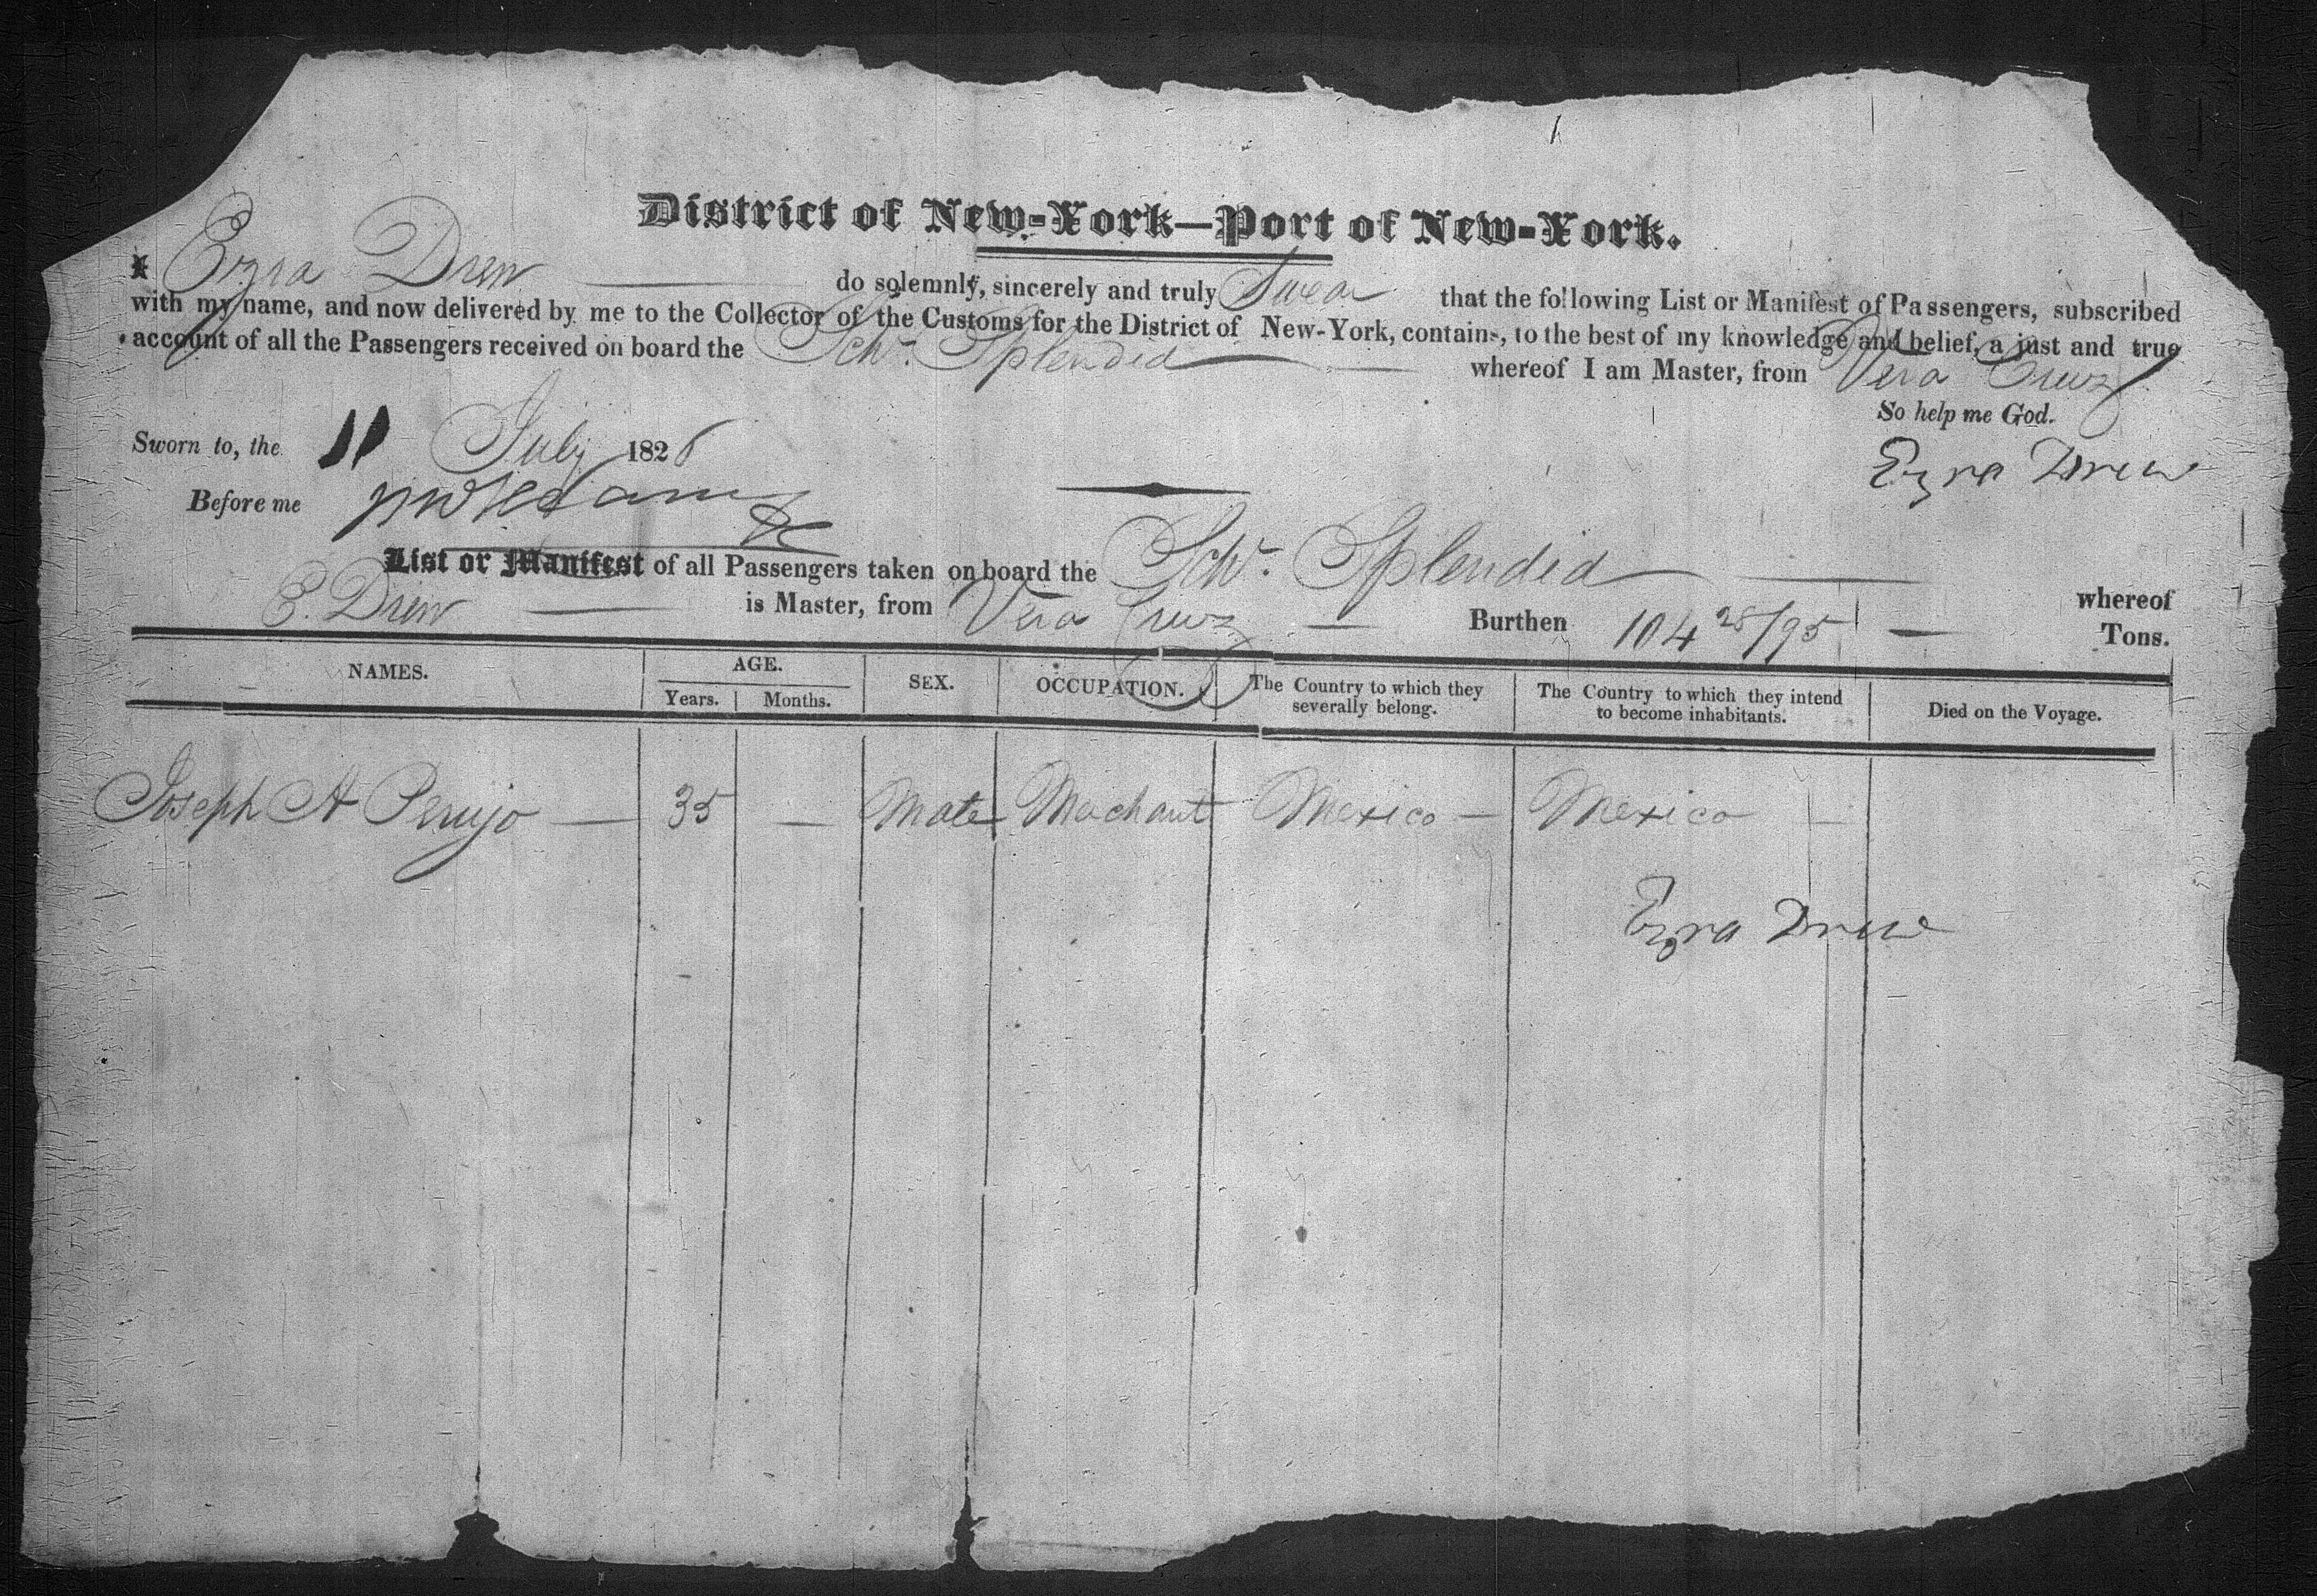 District of New-York—Port of New-York.
I Ezra Drew do solemnly, sincerely and truly Swear that the following List or Manifest of Passengers, subscribed
with my name, and now delivered by me to the Collector of the Customs for the District of New-York, contains, to the best of my knowledge and belief, a just and true
account of all the Passengers received on board the Schr. Splendid whereof I am Master, from Vera Cruz
So help me God.
Sworn to, the 11 July 1826 Ezra Drew
Before me
List or Manifest of all Passengers taken on board the Schr. Splendid whereof
E. Drew is Master, from Vera Cruz Burthen 104 28/95 Tons.
NAMES. AGE. SEX. OCCUPATION. The Country to which they severally belong. The Country to which they intend to become inhabitants. Died on the Voyage.
Years. Months.
Joseph A Perujo — 35 — Male Mechant Mexico — Mexico —
Ezra Drew